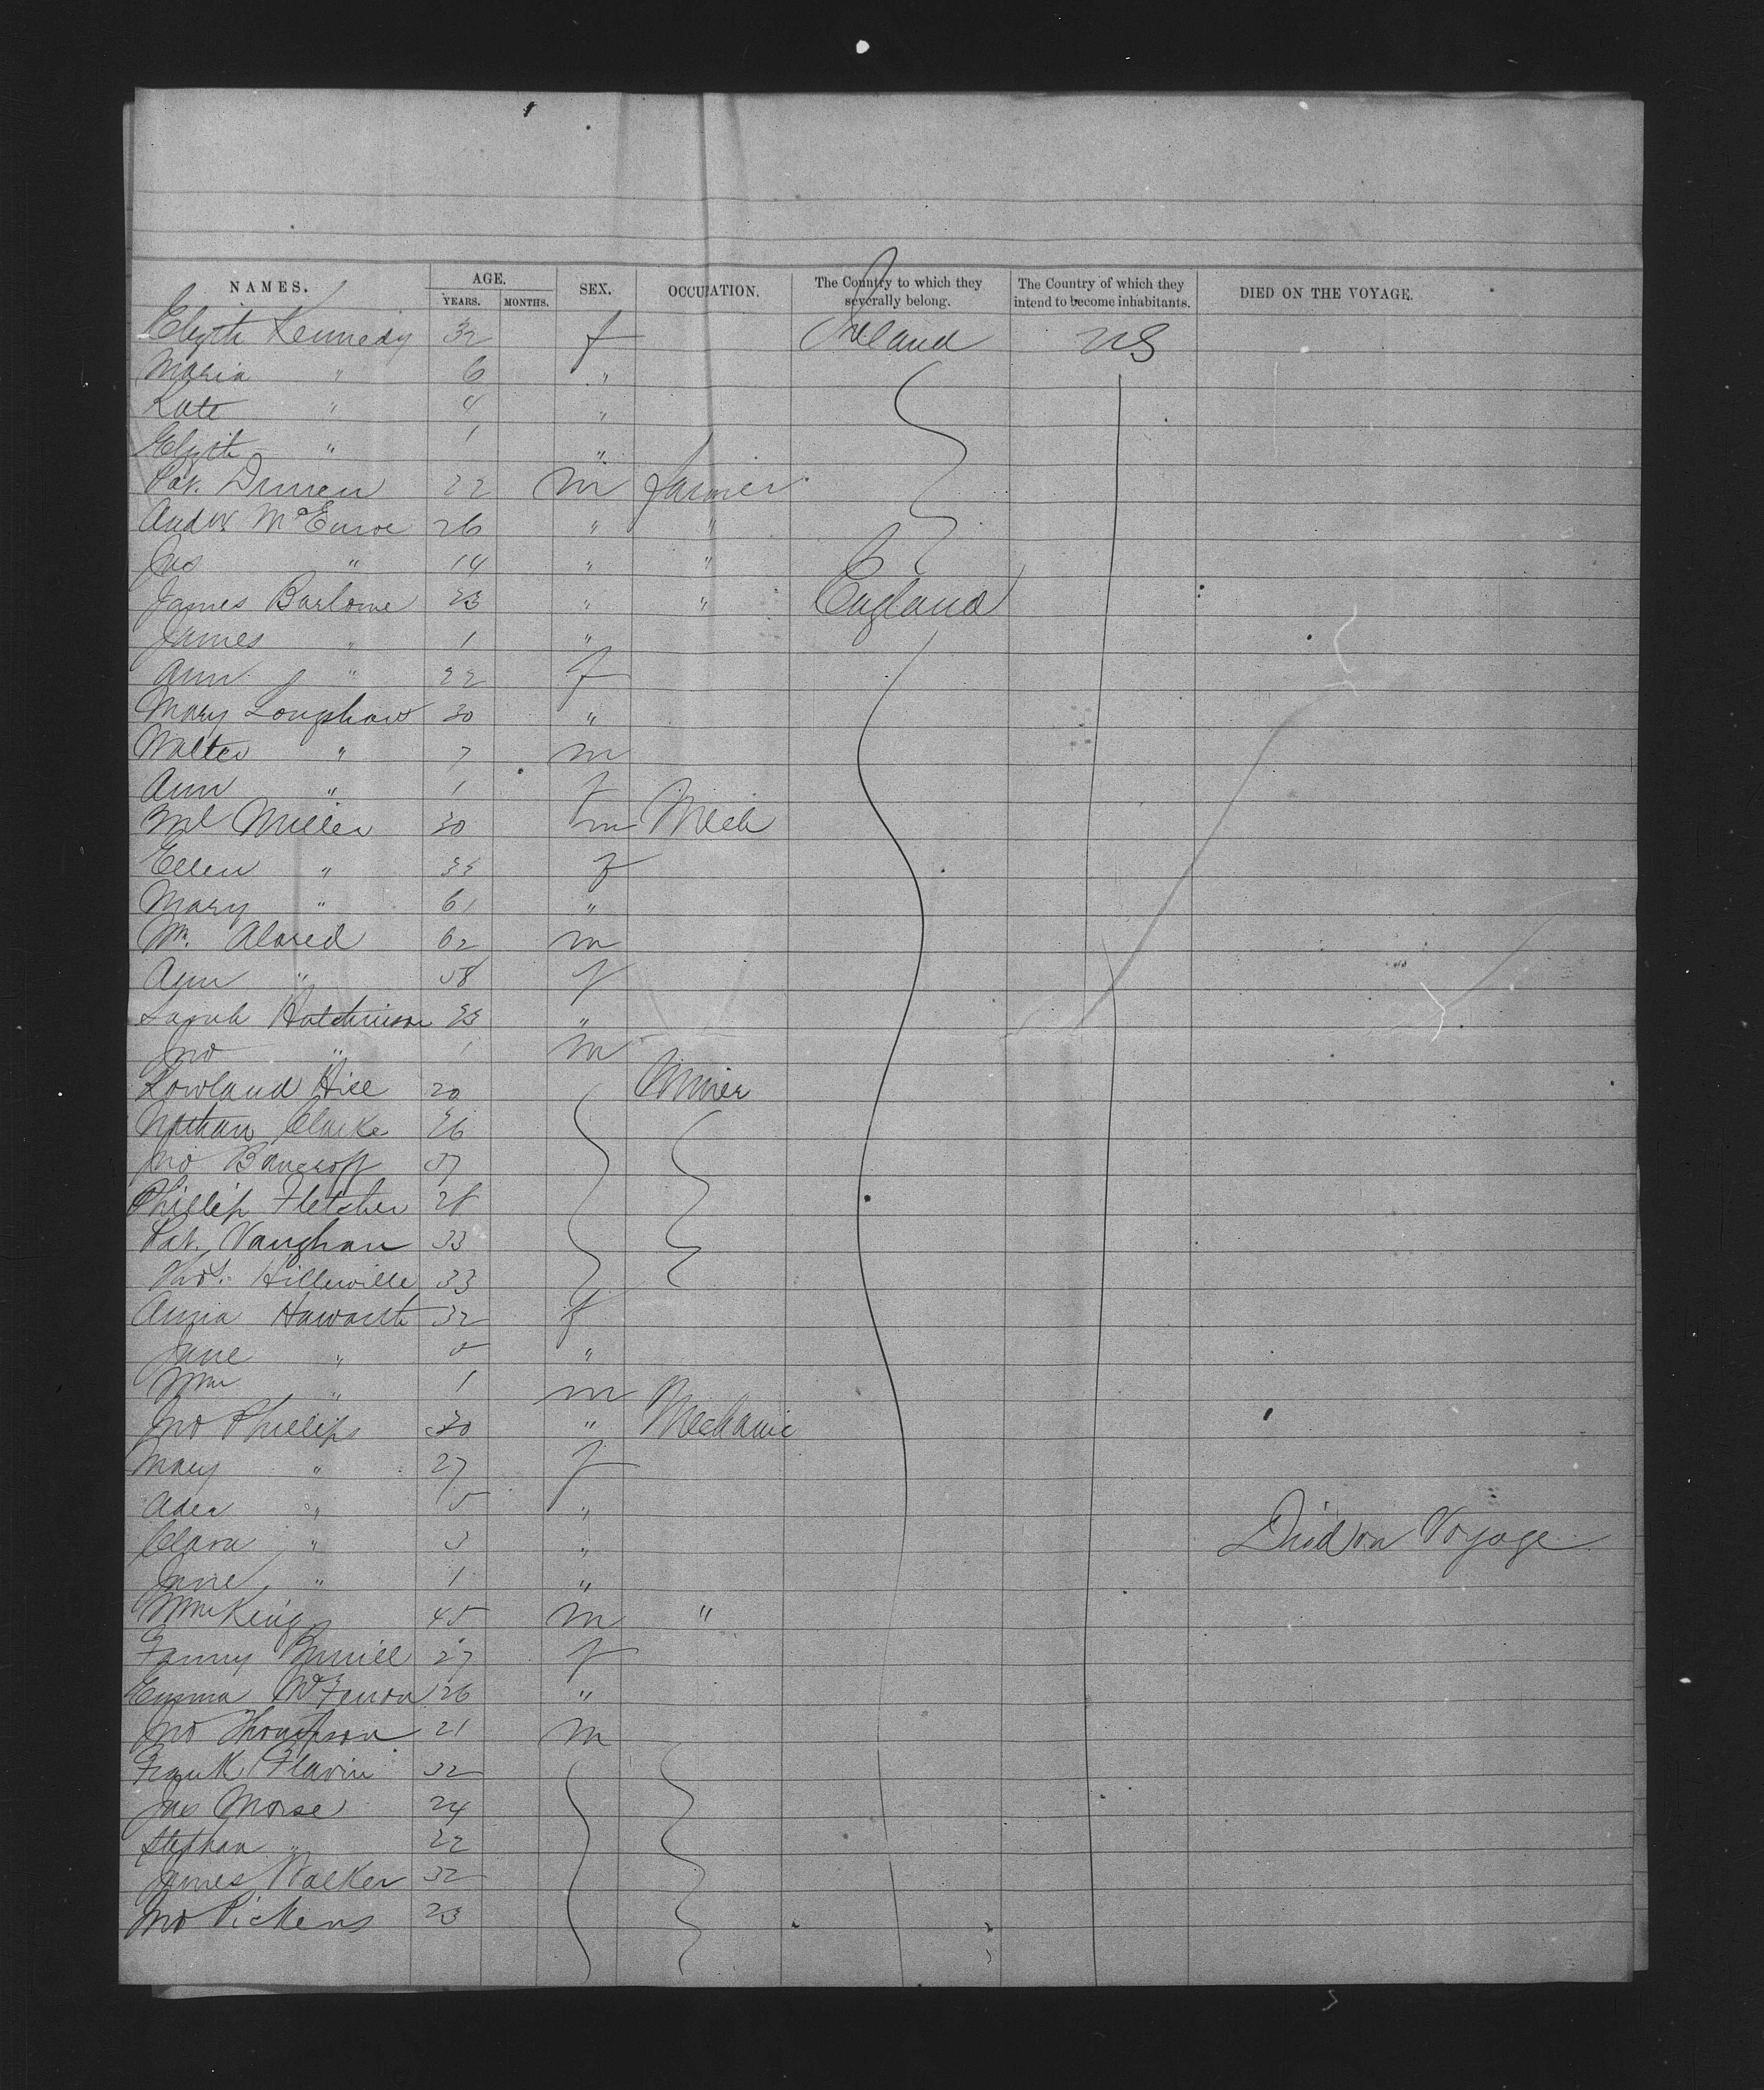 NAMES. AGE. YEARS. MONTHS. SEX. OCCUPATION. The Country to which they severally belong. The Country of which they intend to become inhabitants. DIED ON THE VOYAGE.
Kennedy 32 f Ireland US
Maria " 6 "
Kate " 4 "
" 1 "
Pat. 22 m farmer
Andw. 26 " "
Jas " 14 " "
James Barlowe 23 " " England
James " 1 "
Ann " 22 f
Mary Longshaw 30 "
Walter " 7 m
Ann " 1 f
Miller 30 m Mech
Ellen " 33 f
Mary " 61 "
Wm. Alared 62 m
Agnes " 58 f
Sarah Hutchinson 23 "
Jno " 1 m
Rowland Hill 20 Miner
Nathan Clarke 26
Jno Bancroft 37
Phillip Fletcher 28
Pat. Vaughan 33
Thos. 33
Anna Howarth 32 f
Jane " 5 "
Wm " 1 m
Jno Phillips 30 " Mechanic
Mary " 27 f
Ada " 5 "
Clara " 3 " Died on Voyage
Jane " 1 "
Wm King 45 m "
Fanny 27 f
Emma 26 "
Jno Thompson 21 m
Frank Flavin 32
Jas Morse 24
Stephan " 22
James Walker 32
Jno Pickens 23